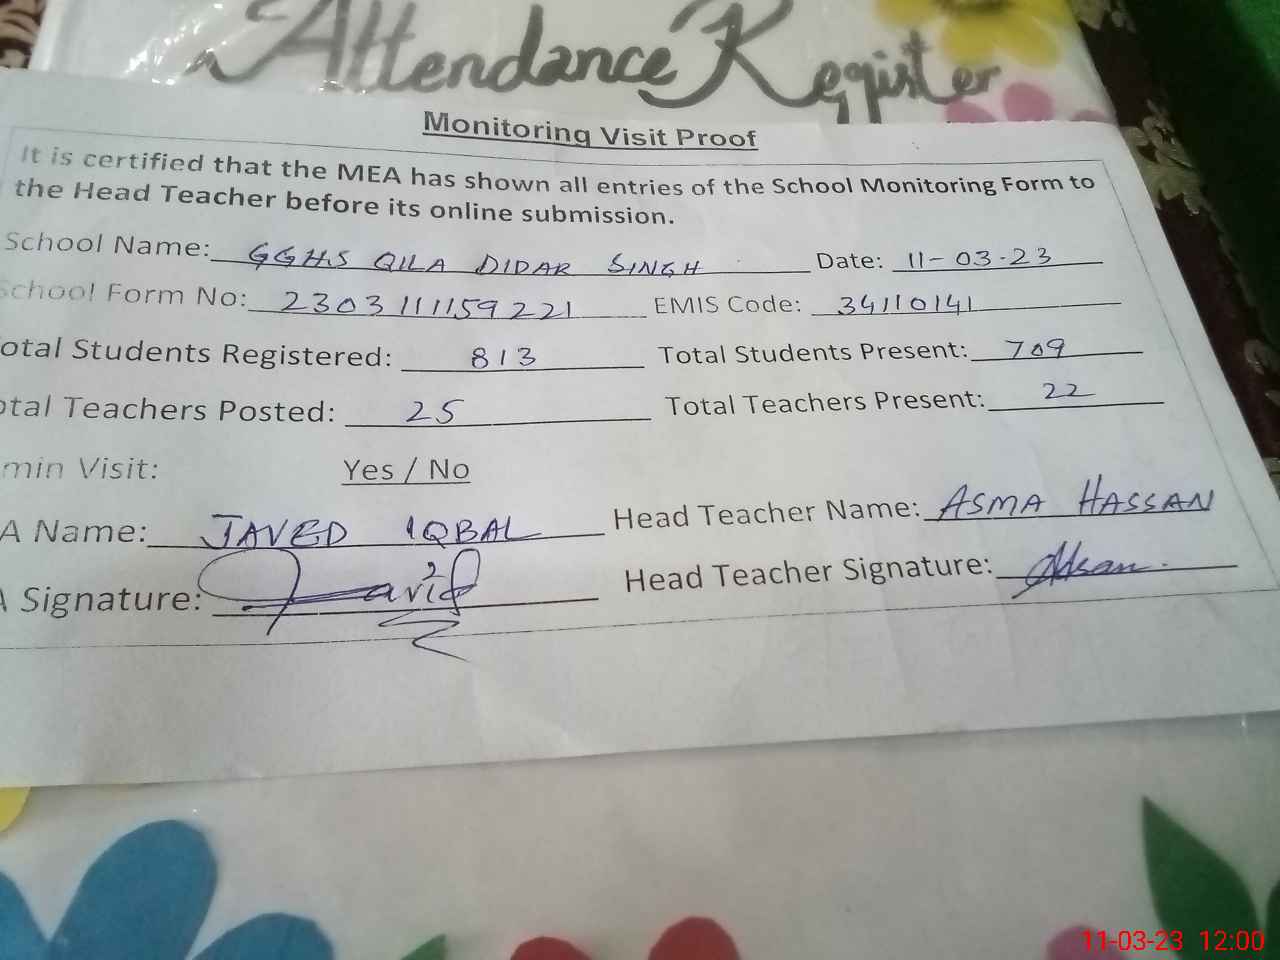 Attendance Register
Monitoring Visit Proof
It is certified that the MEA has shown all entries of the School Monitoring Form to
the Head Teacher before its online submission.
School Name: GGHS QILA DIDAR SINGH Date: 11-03-23
School Form No: 2303111159221 EMIS Code: 34110141
otal Students Registered: 813 Total Students Present: 709
otal Teachers Posted: 25 Total Teachers Present: 22
min Visit: Yes / No
A Name: JAVED IQBAL Head Teacher Name: ASMA HASSAN
A Signature: Head Teacher Signature:
11-03-23 12:00